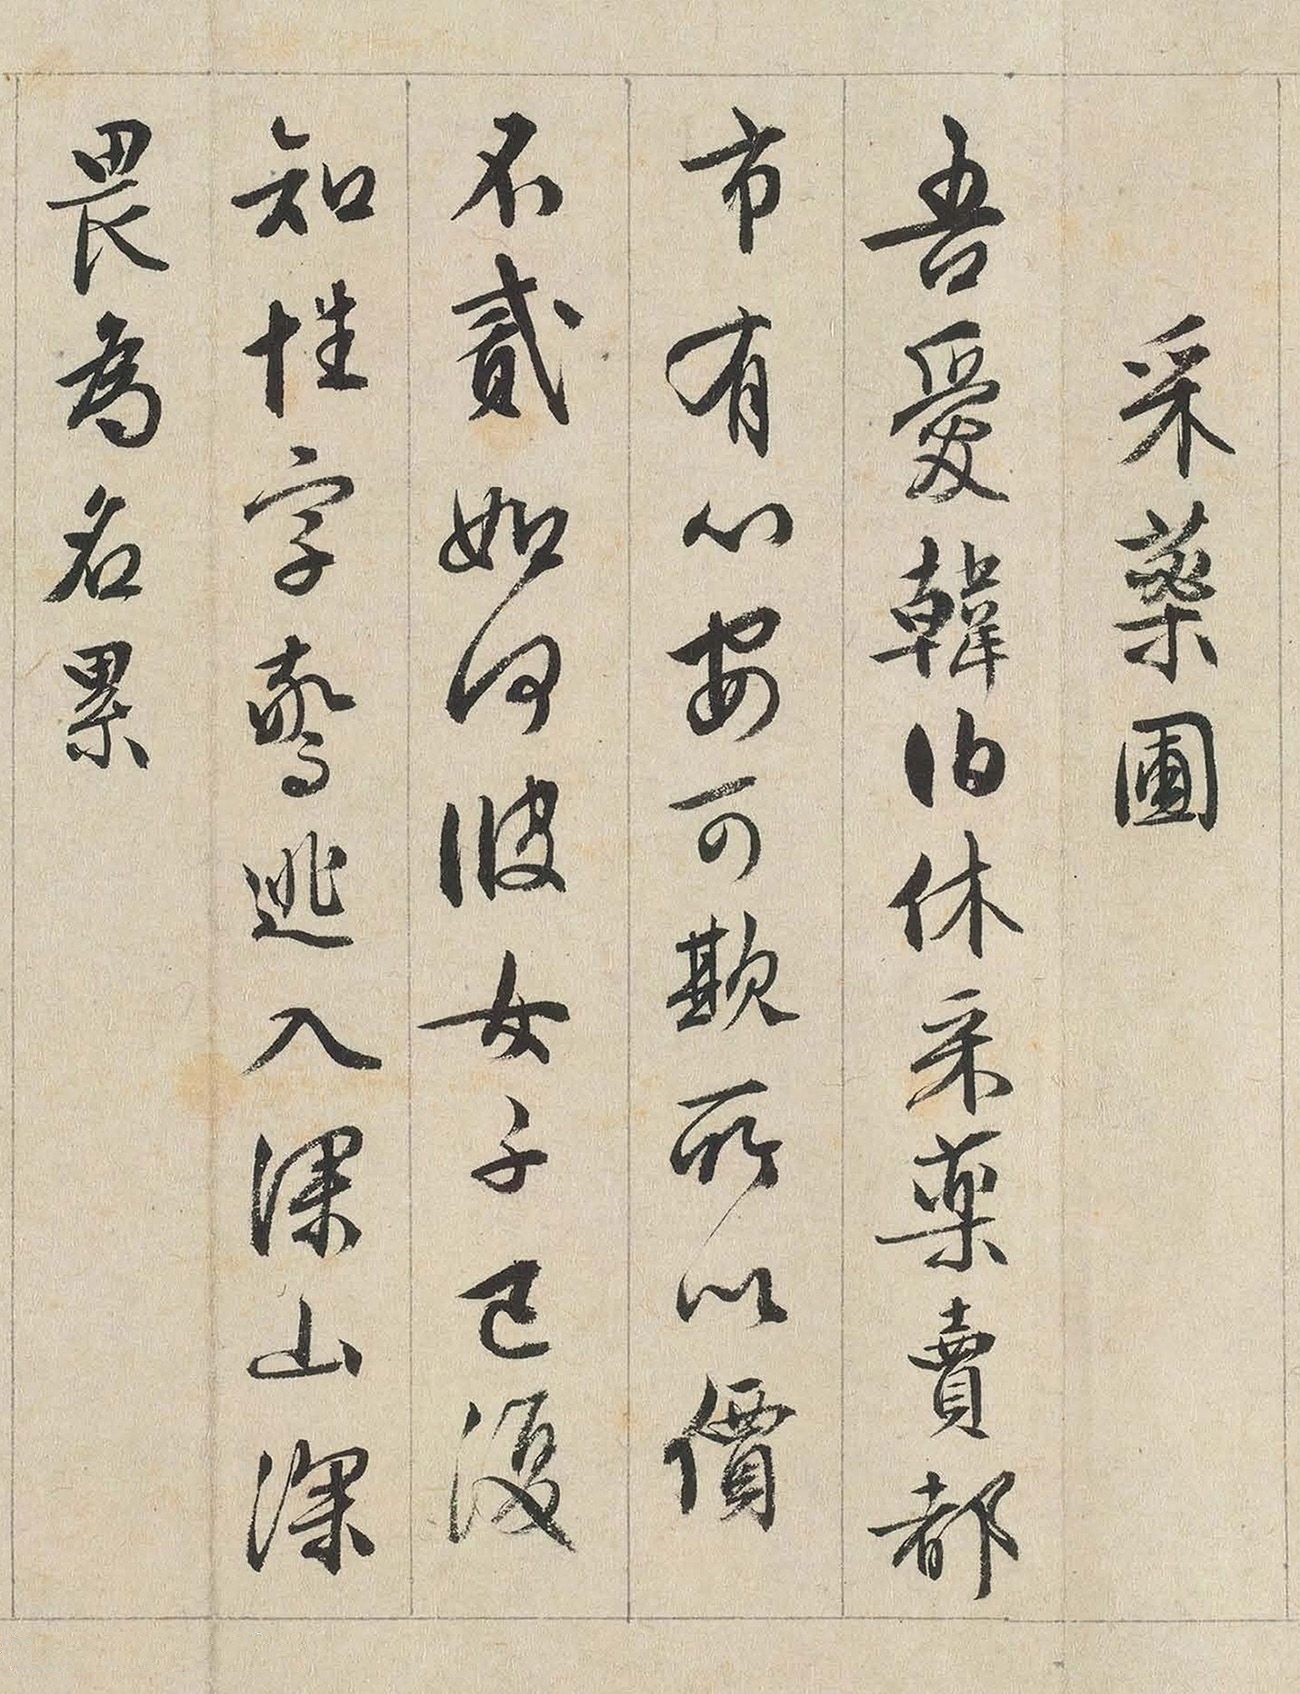 采藥圃
吾愛韓伯休采藥賣都
市有心安可欺所以價
不貳如何彼女子已復
知性字驚逃入深山深
畏為名累